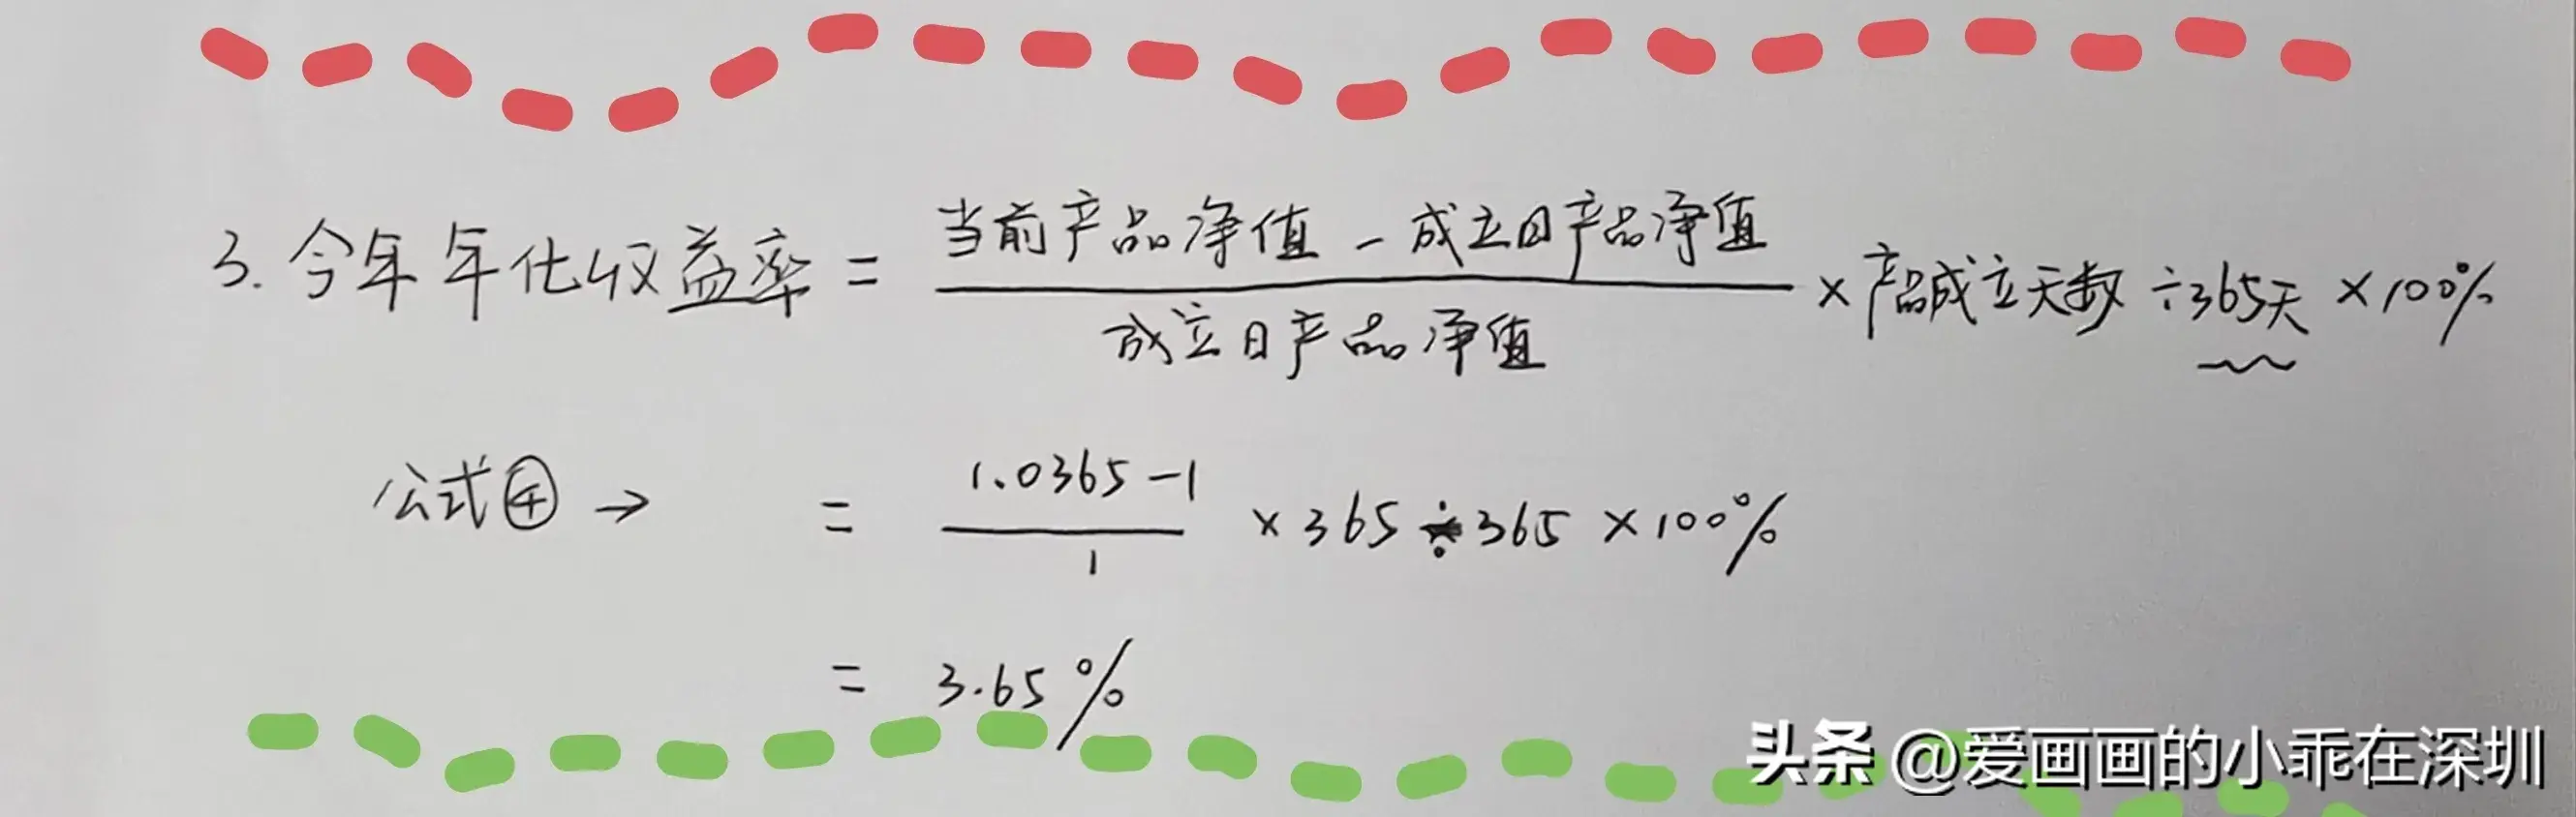 3. 今年年化收益率 = (当前产品净值 - 成立日产品净值) / 成立日产品净值 × 产品成立天数 ÷ 365天 × 100%
公式④ → = (1.0365 - 1) / 1 × 365 ÷ 365 × 100%
= 3.65%
头条 @爱画画的小乖在深圳